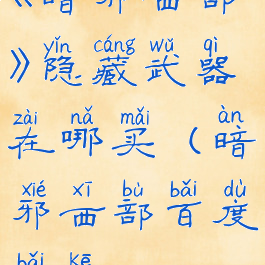 yǐn cáng wǔ qì
》隐藏武器
zài nǎ mǎi àn
在哪买（暗
xié xī bù bǎi dù
邪西部百度
bǎi kē